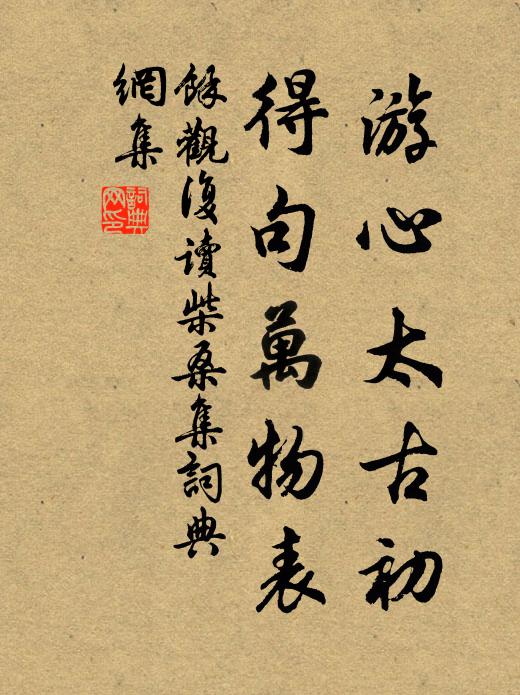 游心太古初
得句萬物表
餘觀復讀柴桑集詞典
網集
詞典
网印